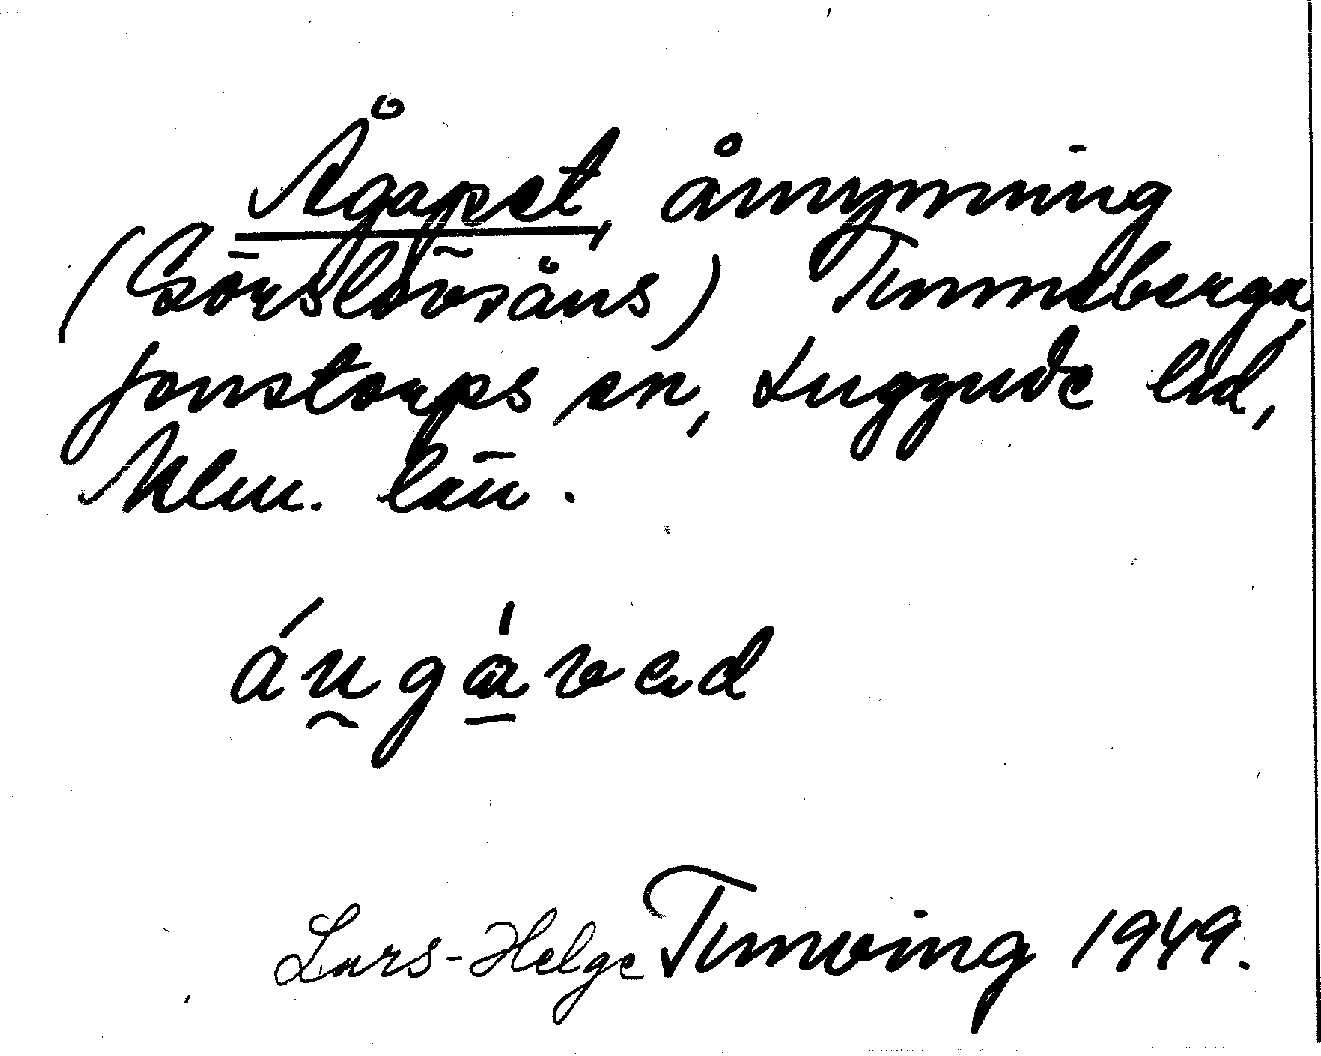 Ågapet, åmynning
(Görslövsåns) Tunneberga,
Jonstorps sn, Luggude hd,
Mlm. län.
áṷgá̱vad
Lars-Helge Tunving 1949.